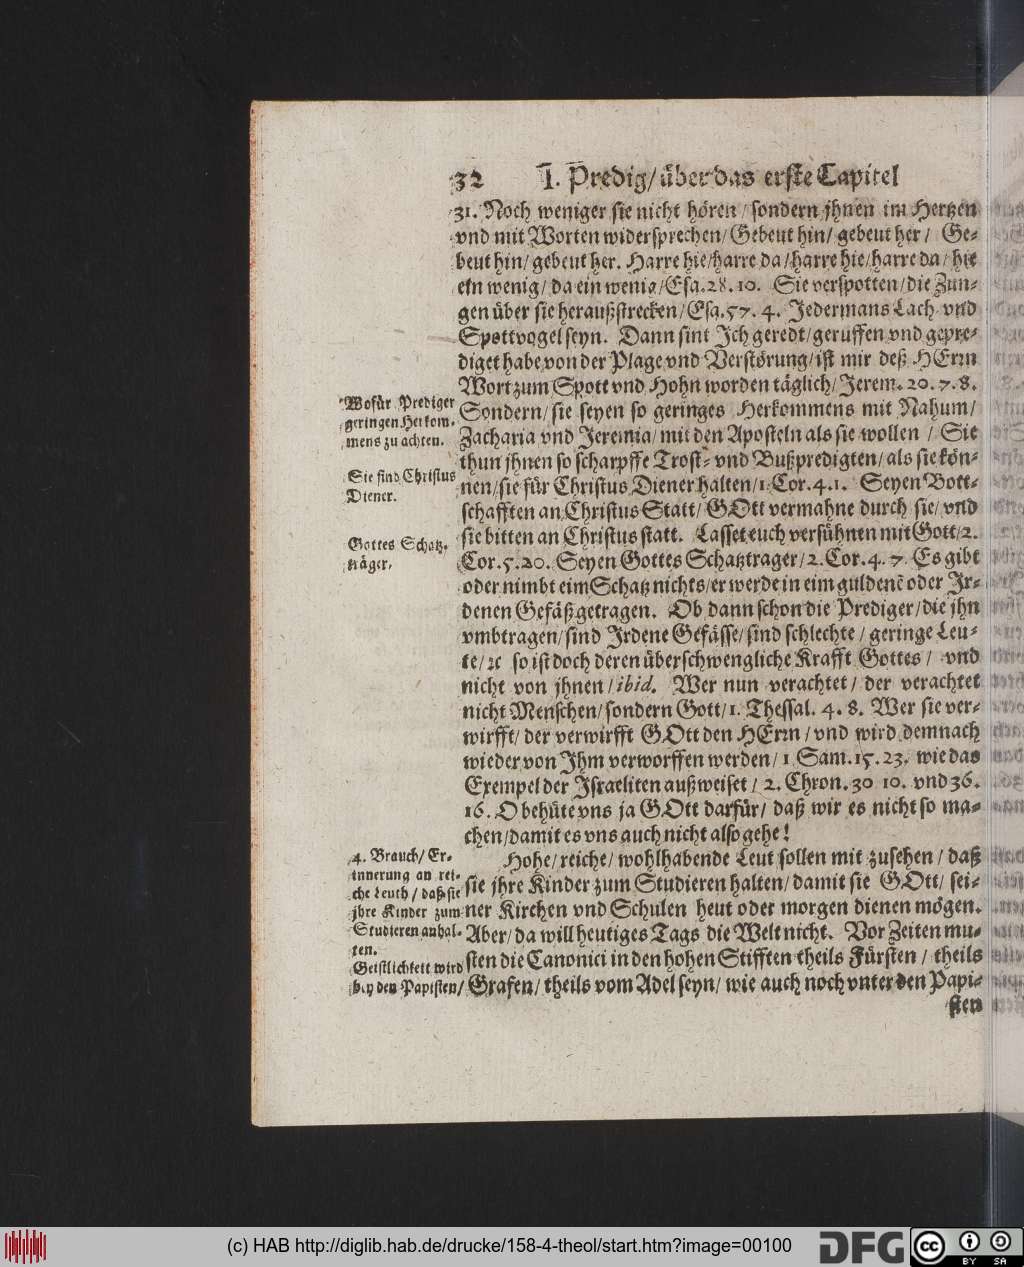 32 I. Predig/ über das erste Capitel
31. Noch weniger sie nicht hören/ sondern jhnen im Hertzen
vnd mit Worten widersprechen/ Gebeut hin/ gebeut her/ Ge-
beut hin/ gebeut her. Harre hie/ harre da/ harre hie/ harre da/ hie
ein wenig/ da ein wenig/ Esa. 28. 10. Sie verspotten/ die Zun-
gen über sie heraußstrecken/ Esa. 57. 4. Jedermans Lach- vnd
Spottvogel seyn. Dann sint Ich geredt/ geruffen vnd gepre-
diget habe von der Plage vnd Verstörung/ ist mir deß HErrn
Wort zum Spott vnd Hohn worden täglich/ Jerem. 20. 7. 8.
Wofür Prediger
geringen Herkom-
mens zu achten.
Sondern/ sie seyen so geringes Herkommens mit Nahum/
Zacharia vnd Jeremia/ mit den Aposteln als sie wollen/ Sie
thun jhnen so scharpffe Trost- vnd Bußpredigten/ als sie kön-
Sie sind Christus
Diener.
nen/ sie für Christus Diener halten/ 1. Cor. 4. 1. Seyen Bott-
schafften an Christus Statt/ GOtt vermahne durch sie/ vnd
sie bitten an Christus statt. Lasset euch versühnen mit Gott/ 2.
Gottes Schatz-
träger.
Cor. 5. 20. Seyen Gottes Schatztrager/ 2. Cor. 4. 7. Es gibt
oder nimbt eim Schatz nichts/ er werde in eim guldenē oder Ir-
denen Gefäß getragen. Ob dann schon die Prediger/ die jhn
vmbtragen/ sind Irdene Gefässe/ sind schlechte/ geringe Leu-
te/ ꝛc so ist doch deren überschwengliche Krafft Gottes/ vnd
nicht von jhnen/ ibid. Wer nun verachtet/ der verachtet
nicht Menschen/ sondern Gott/ 1. Thessal. 4. 8. Wer sie ver-
wirfft/ der verwirfft GOtt den HErrn/ vnd wird demnach
wieder von Ihm verworffen werden/ 1 Sam. 15. 23. wie das
Exempel der Israeliten außweiset/ 2. Chron. 30 10. vnd 36.
16. O behüte vns ja GOtt darfür/ daß wir es nicht so ma-
chen/ damit es vns auch nicht also gehe!
4. Brauch/ Er-
innerung an rei-
che Leuth/ daß sie
jhre Kinder zum
Studieren anhal-
ten.
Geistlichkeit wird
bey den Papisten/
Hohe/ reiche/ wohlhabende Leut sollen mit zusehen/ daß
sie jhre Kinder zum Studieren halten/ damit sie GOtt/ sei-
ner Kirchen vnd Schulen heut oder morgen dienen mögen.
Aber/ da will heutiges Tags die Welt nicht. Vor Zeiten mu-
sten die Canonici in den hohen Stifften theils Fürsten/ theils
Grafen/ theils vom Adel seyn/ wie auch noch vnter den Papi-
sten
(c) HAB http://diglib.hab.de/drucke/158-4-theol/start.htm?image=00100
DFG
cc BY SA